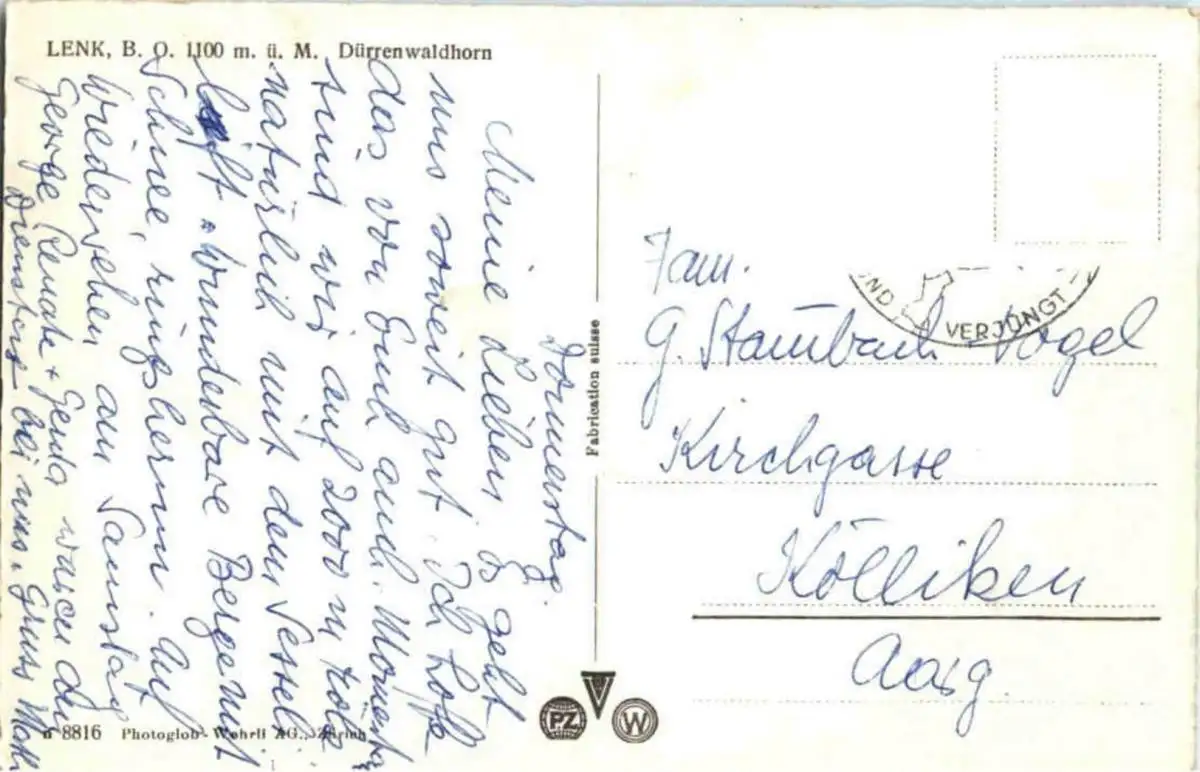 LENK, B. O. 1100 m. ü. M. Dürrenwaldhorn
Donnerstag.
Meine Lieben Es geht
uns soweit gut. Ich hoffe
das von Euch auch. Momentan
sind wir auf 2000 m Höhe
natürlich mit dem Sessel-
lift. Wunderbare Berge mit
Schnee, ringsherum. Auf
Wiedersehen am Samstag
George Renate + Gerda waren
Dienstags bei uns. Gruss
Fabrication suisse
UND VERJÜNGT
Fam.
G. Stambach - Vogel
Kirchgasse
Kölliken
Aarg.
8816 Photoglob-Wehrli AG., Zürich
PZ
W